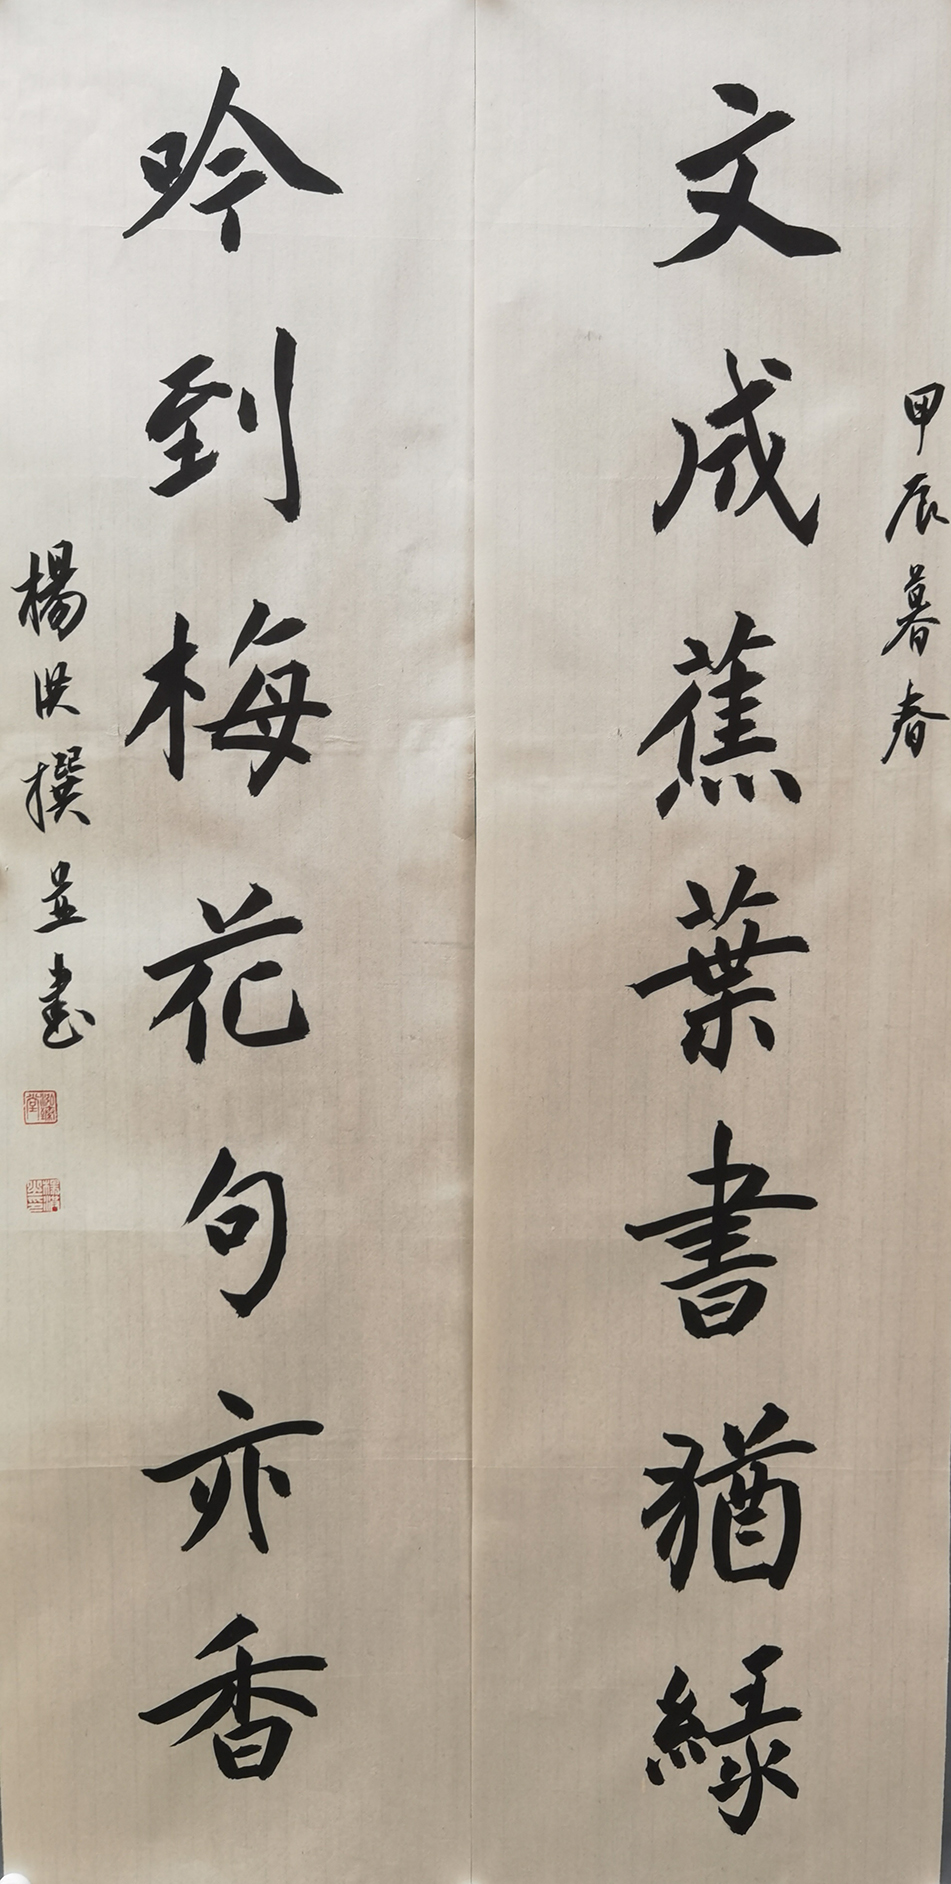 甲辰暮春
文成蕉葉書猶綠
吟到梅花句亦香
楊洪撰並書